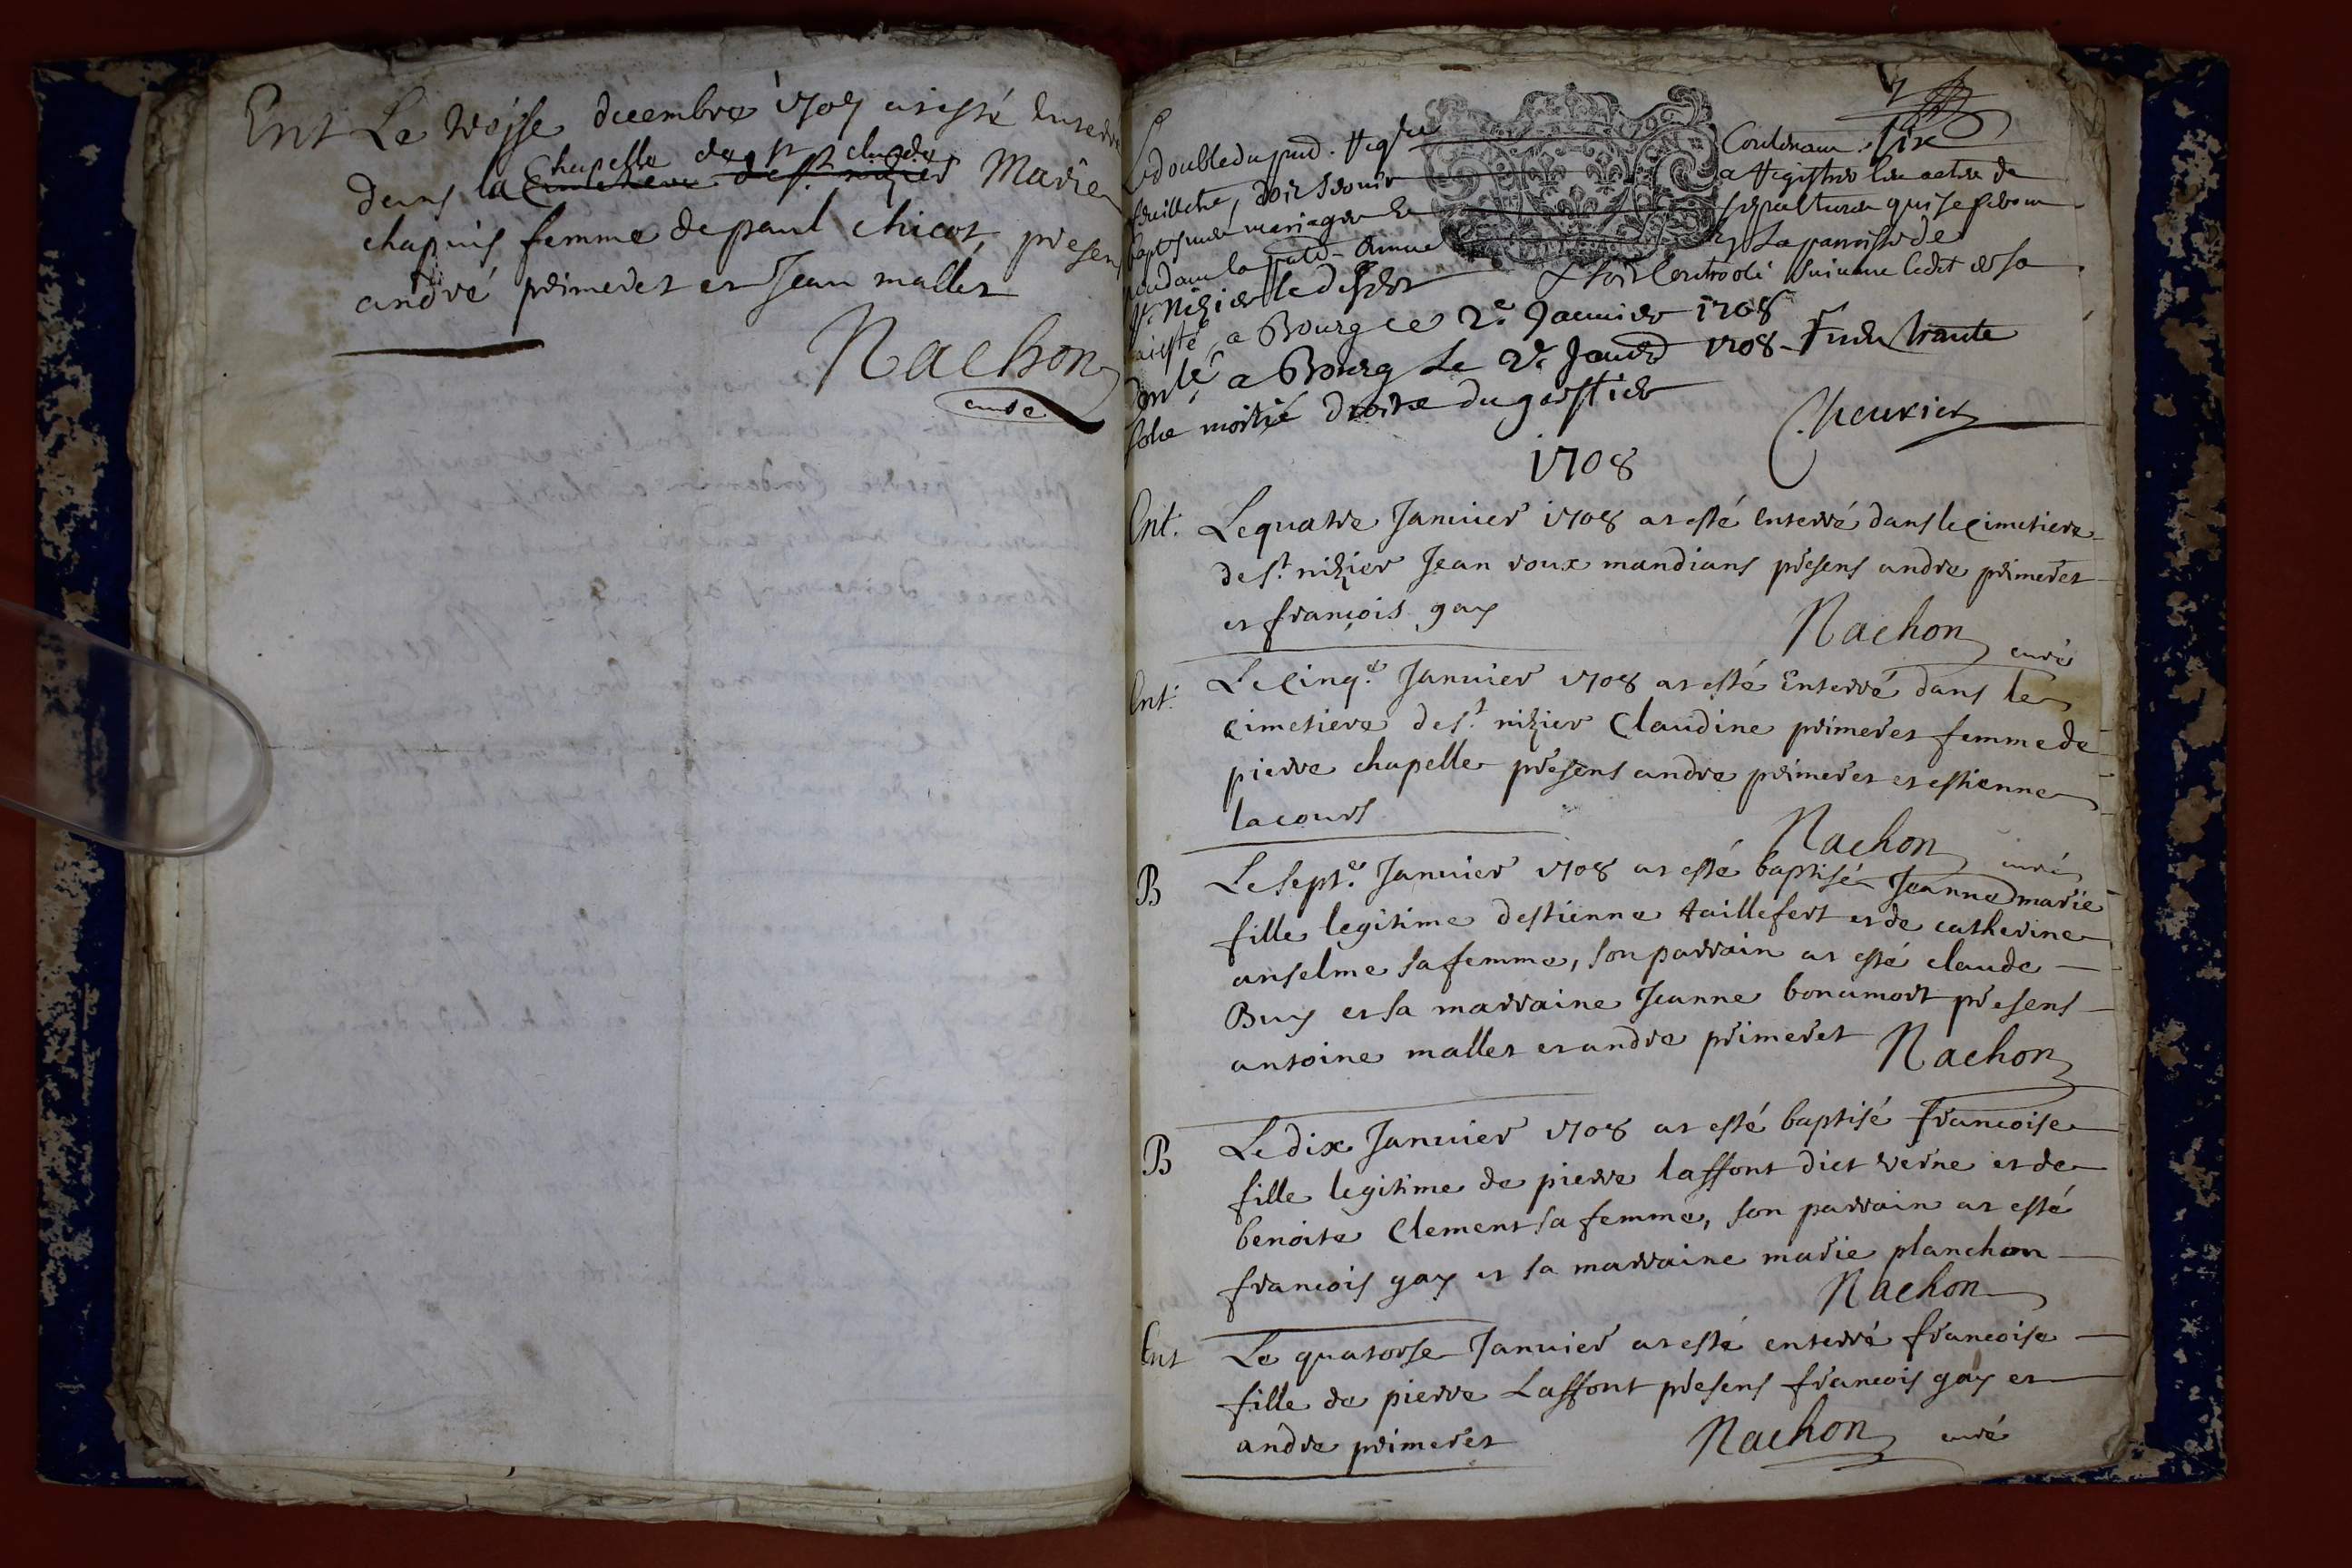 Ent Le treisse decembre 1707 at esté Enterré
chapelle de st claude
dans la Cimetiere de st. nizier Marie
chapuis femme de paul chicot, presens
andré primeret et Jean mallet
Nachon
curé
Le double du pnt. Regre Contenant six
feuillets, doit servir a Registrer les actes de
baptesmes mariages et sepultures qui se feront
pendant la pnte. année en La parroisse de
st. Nizier le desert & sera Controolé suivant ledit et sa
a Bourg ce 2e. Janvier 1708
a Bourg Le 2e. Janvr 1708
moitié droits du greffier
Cheurier
1708
Ent. Le quatre Janvier 1708 at esté Enterré dans le Cimetiere
de st. nizier Jean roux mandians presens andre primeret
et françois gay
Nachon curé
Ent. Le Cinq.e Janvier 1708 at esté Enterré dans le
Cimetiere de st. nizier Claudine primeret femme de
pierre chapelle presens andre primeret et estienne
lacours
Nachon curé
B Le sept.e Janvier 1708 at esté baptisé Jeanne marie
fille legitime destienne taillefert et de catherine
anselme sa femme, son parrain at esté claude
Buy et sa marraine Jeanne bonamort presens
antoine mallet et andre primeret Nachon
B Le dix Janvier 1708 at esté baptisé francoise
fille legitime de pierre laffont dict verne et de
benoite Clement sa femme, son parrain at esté
francois gay et sa marraine marie planchon
Nachon
Ent Le quatorse Janvier at esté enterré francoise
fille de pierre Laffont presens francois gay et
andre primeret Nachon curé